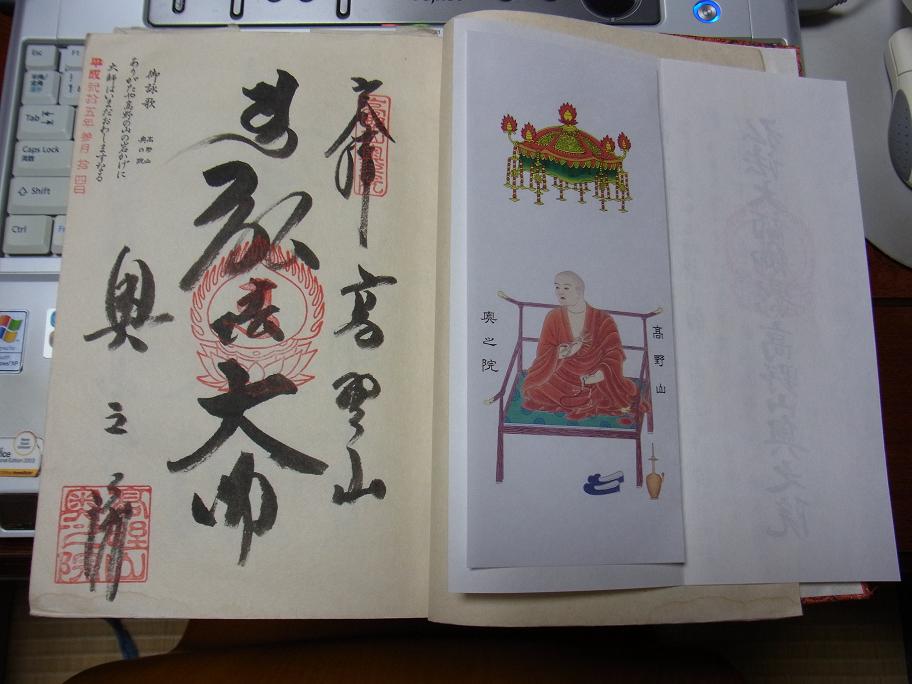 高野山
弘法大師
奥之院
御詠歌 高野山 奥の院
ありがたや高野の山の岩かげに
大師はいまだおわしますなる
平成弐拾五年 参月 拾四日
高野山
奥之院
高野山
奥之院
Esc
Tab
Caps Lock
英数
Shift
Ctrl